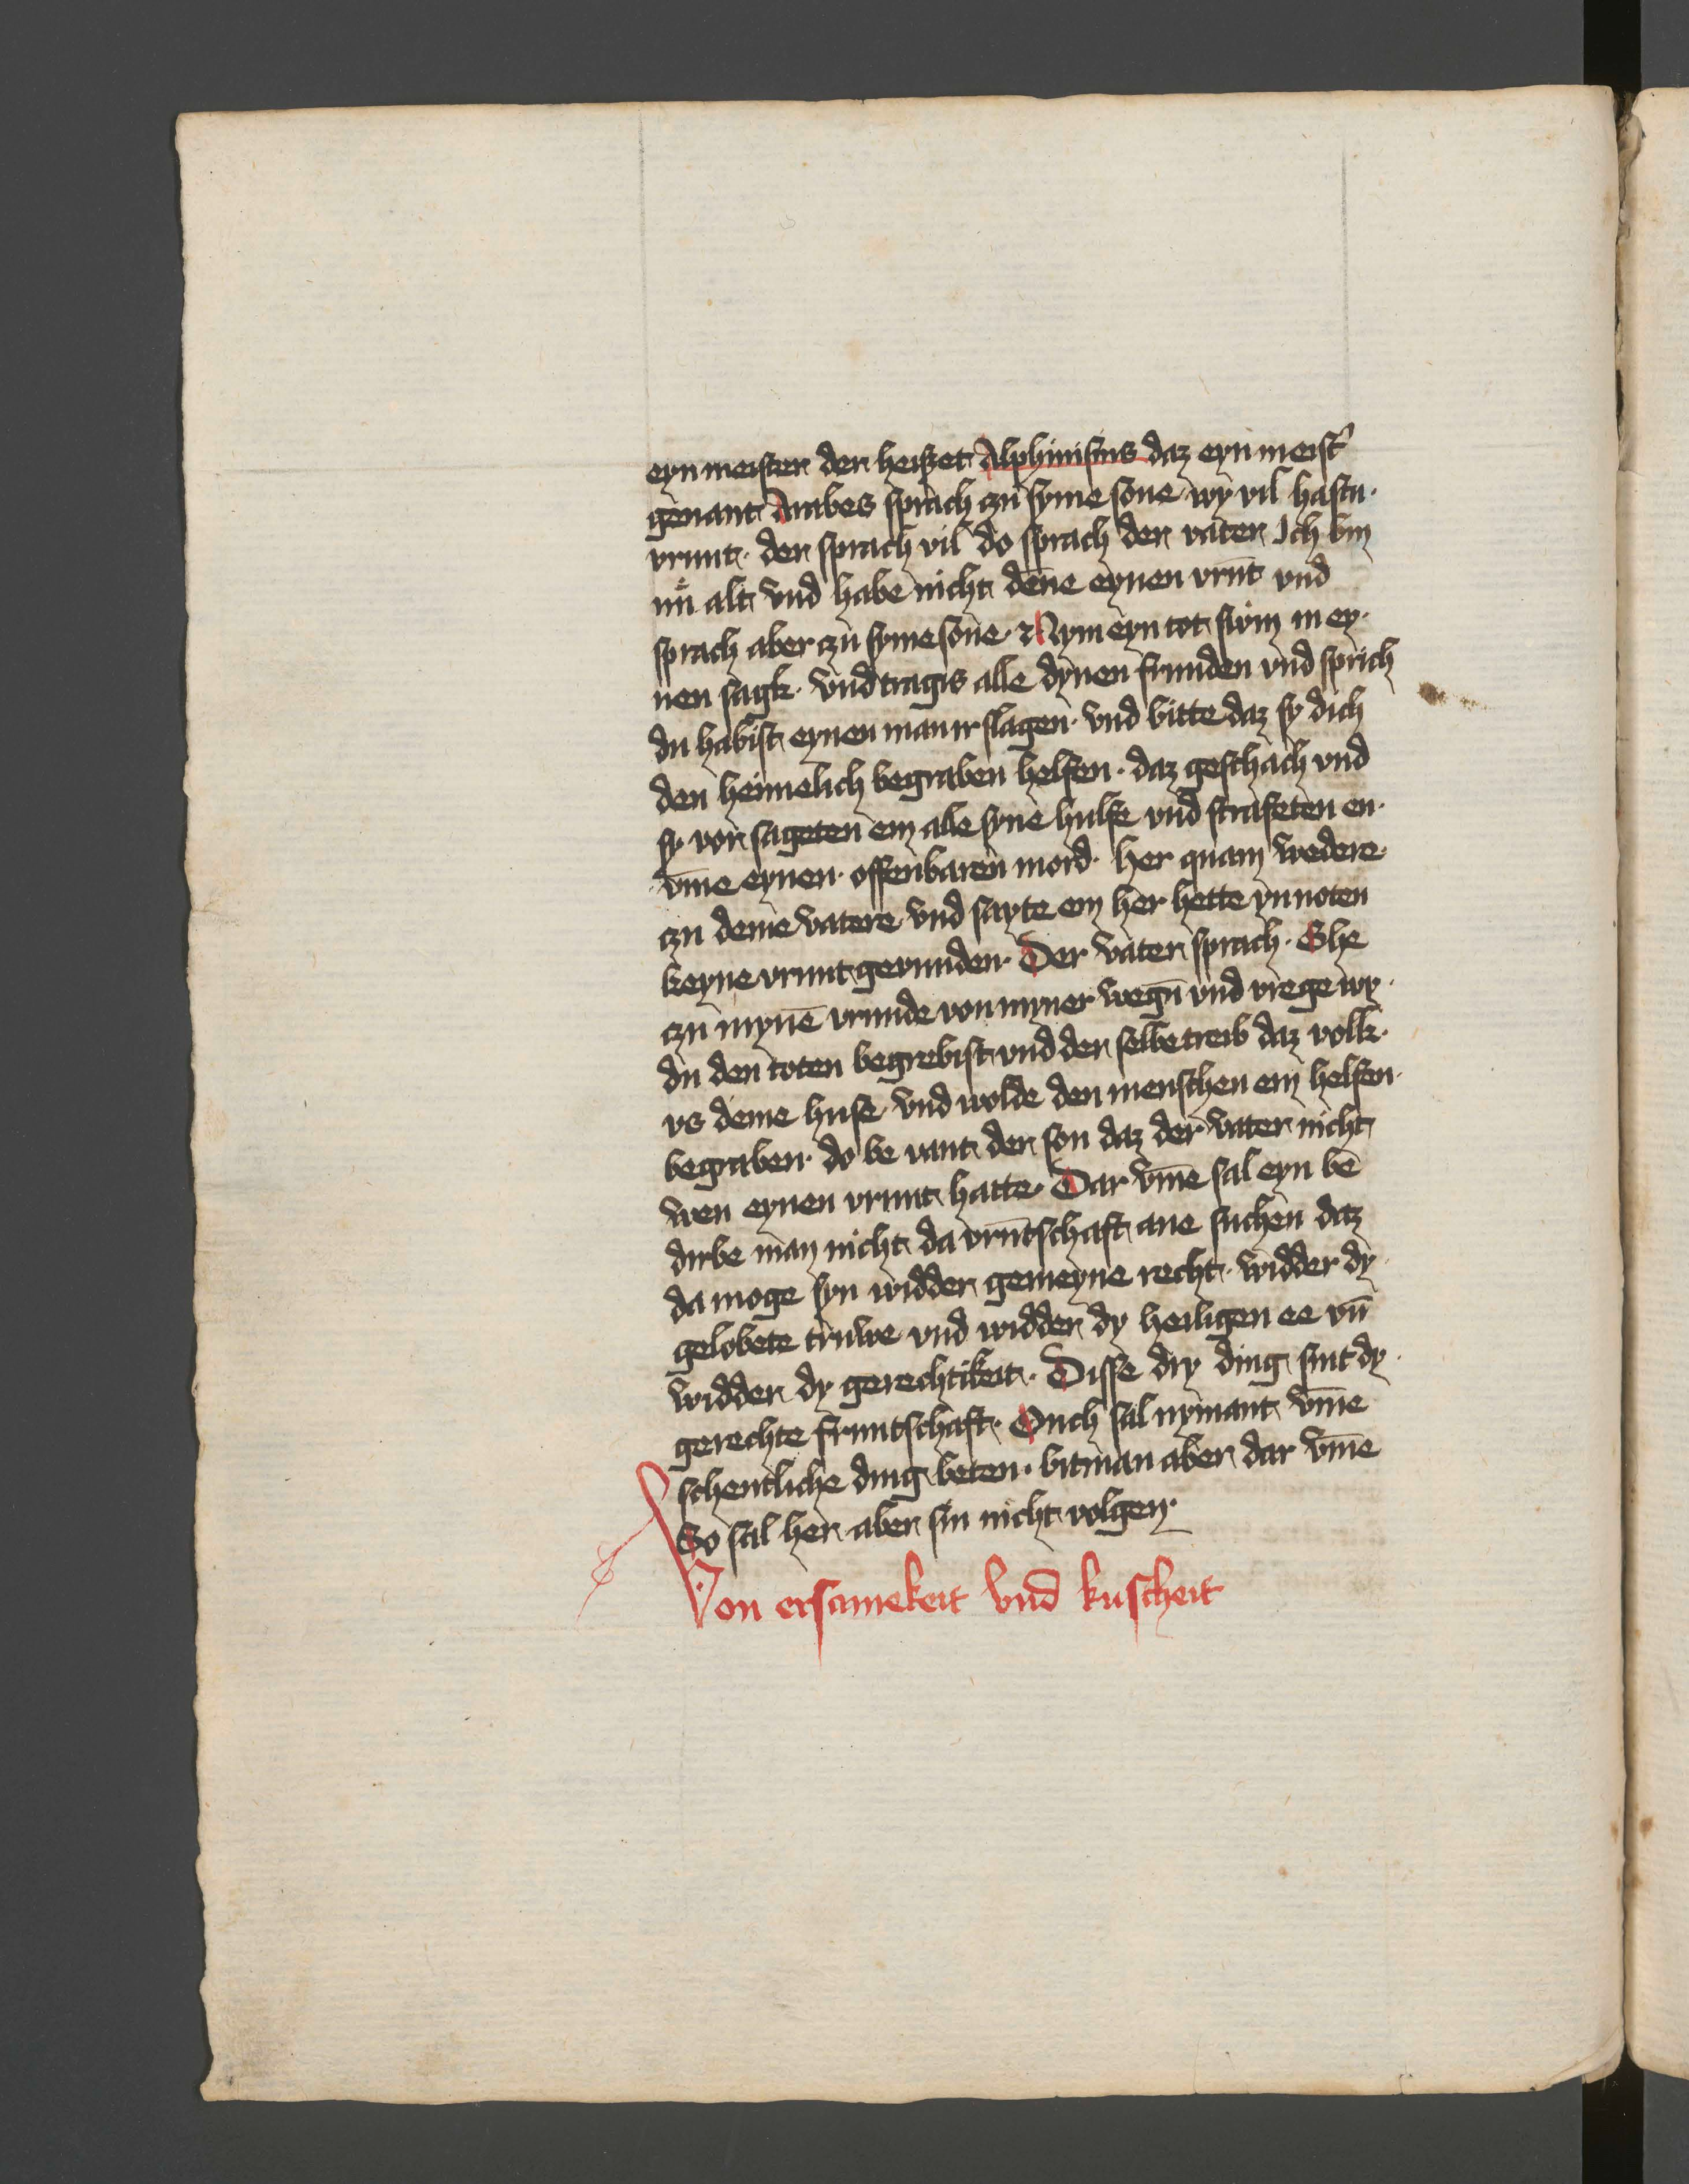 eyn meister der heiszet Alphinisius daz eyn meist'
genant Arabes sprach zu syme sone wy vil hastu·
vrunt· der sprach vil do sprach der vater Ich bin
nů alt vnd habe nicht dēne eynen vrūt vnd
sprach aber zu syme sone· Nym eyn tot swin in ey·
nen sagk· vnd tragis alle dynen frunden vnd sprich
du habist eynen man irslagen· vnd bitte daz sy dich
den heimelich begraben helfen· daz geschach vnd
sy vorsageten em alle syne hulfe vnd strafeten en·
vm̄e eynen· offenbaren mord· her quam wedere·
zu deme vatere vnd sayte em her hette yn noten
keyne vrunt gevunden· Der vater sprach· Ghe
zu mynē vrunde von myner wegn̄ vnd vrege wy·
du den toten begrebist vnd der selbe treib daz volk·
vs deme huse vnd wolde den menschen em helfen·
begraben· do be vant der son daz der vater nicht
wen eynen vrunt hatte· Dar vm̄e sal eyn bē
dirbe man nicht da vrūtschaft ane suchen daz
da moge syn widder gemeyne recht· widder dy·
gelobete truwe vnd widder dy heiligen ee vn̄
widder dy gerechtikeit· Disse dry ding sint dy·
gerechte fruntschaft· Ouch sal nymant vm̄e
schentliche ding beten· bit man aber dar vm̄e
So sal her aber sin nicht volgen·
Von ersamekeit vnd kuscheit